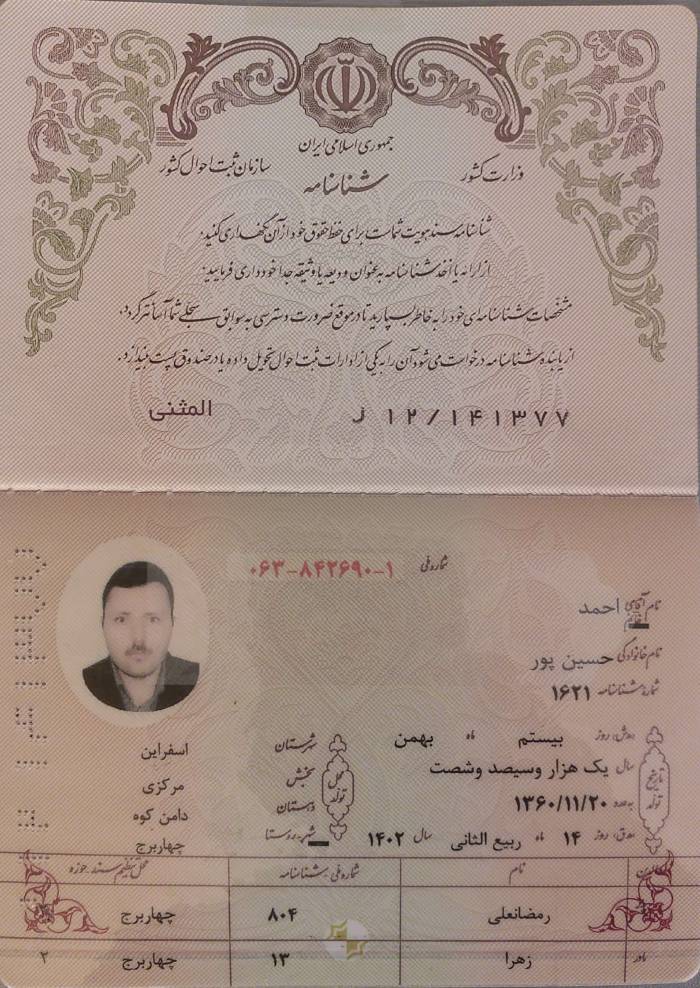 جمهوری اسلامی ایران
وزارت کشور
سازمان ثبت احوال کشور
شناسنامه
شناسنامه سند هویت شماست برای حفظ حقوق خود از آن نگهداری کنید.
از ارائه یا اخذ شناسنامه به عنوان ودیعه یا وثیقه جدا خودداری فرمایید.
مشخصات شناسنامه‌ای خود را به خاطر بسپارید تا در موقع ضرورت دسترسی به سوابق سجلی شما آسانتر گردد.
از یابنده شناسنامه درخواست می‌شود آن را به یکی از ادارات ثبت احوال تحویل داده یا در صندوق پست بیندازد.
ر ۱۲/۱۴۱۳۷۷ المثنی
شماره ملی ۰۶۳-۸۴۲۶۹۰-۱
نام آقای احمد
خانم
نام خانوادگی حسین پور
شماره شناسنامه ۱۶۲۱
تاریخ تولد
روز بیستم ماه بهمن
سال یک هزار وسیصد وشصت
۱۳۶۰/۱۱/۲۰
روز ۱۴ ماه ربیع الثانی سال ۱۴۰۲
محل تولد
شهرستان اسفراین
بخش مرکزی
دهستان دامن کوه
شهر-روستا چهاربرج
نام شماره ملی-شناسنامه محل تنظیم سند حوزه
رمضانعلی ۸۰۴ چهاربرج
مادر زهرا ۱۳ چهاربرج ۲